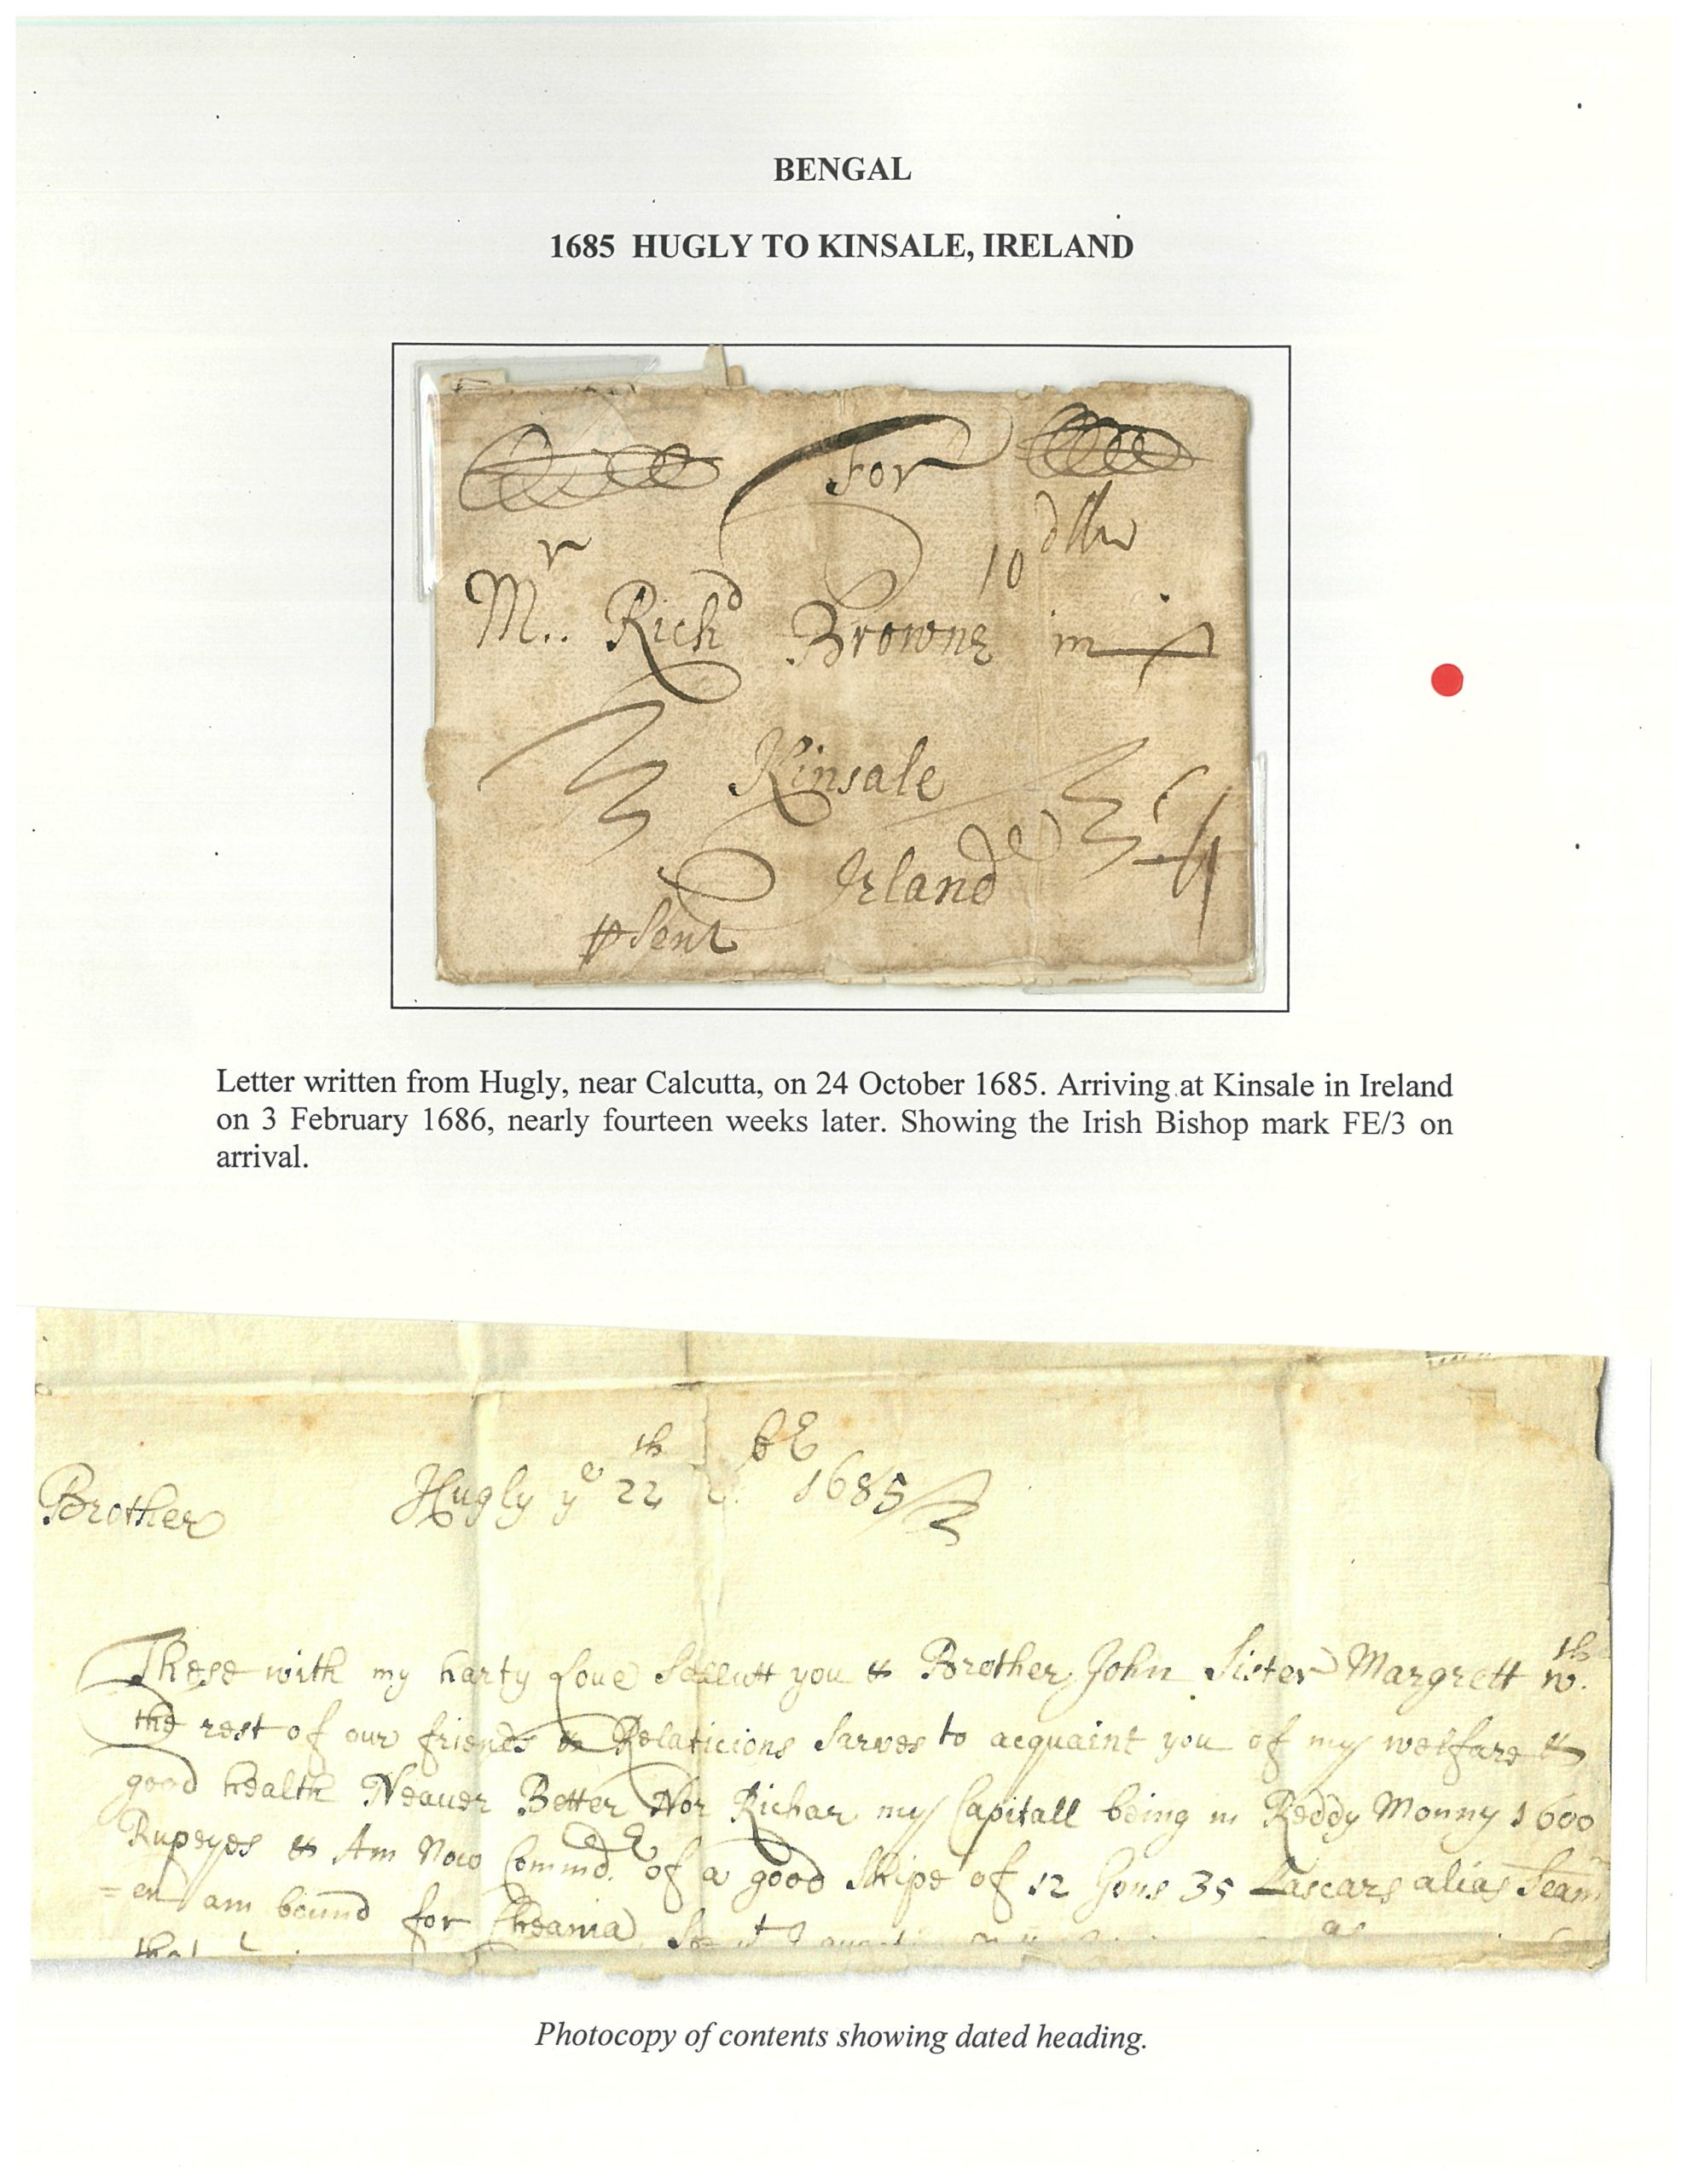 BENGAL
1685 HUGLY TO KINSALE, IRELAND
For
Mr.. Richd Browne in
10
Kinsale
Irland
Letter written from Hugly, near Calcutta, on 24 October 1685. Arriving at Kinsale in Ireland
on 3 February 1686, nearly fourteen weeks later. Showing the Irish Bishop mark FE/3 on
arrival.
Brother Hugly ye 22th 1685
These with my harty Love Sallutt you & Brother John Sister Margrett wth.
the rest of our friends & Relaticions Sarves to acquaint you of my welfare &
good health Neaver Better Nor Richar my Capitall being in Reddy Monny 1600
Rupeyes & Am Now Commdr. of a good Shipe of 12 Gons 35 Lascars alias Seam
=en am bound for
Photocopy of contents showing dated heading.